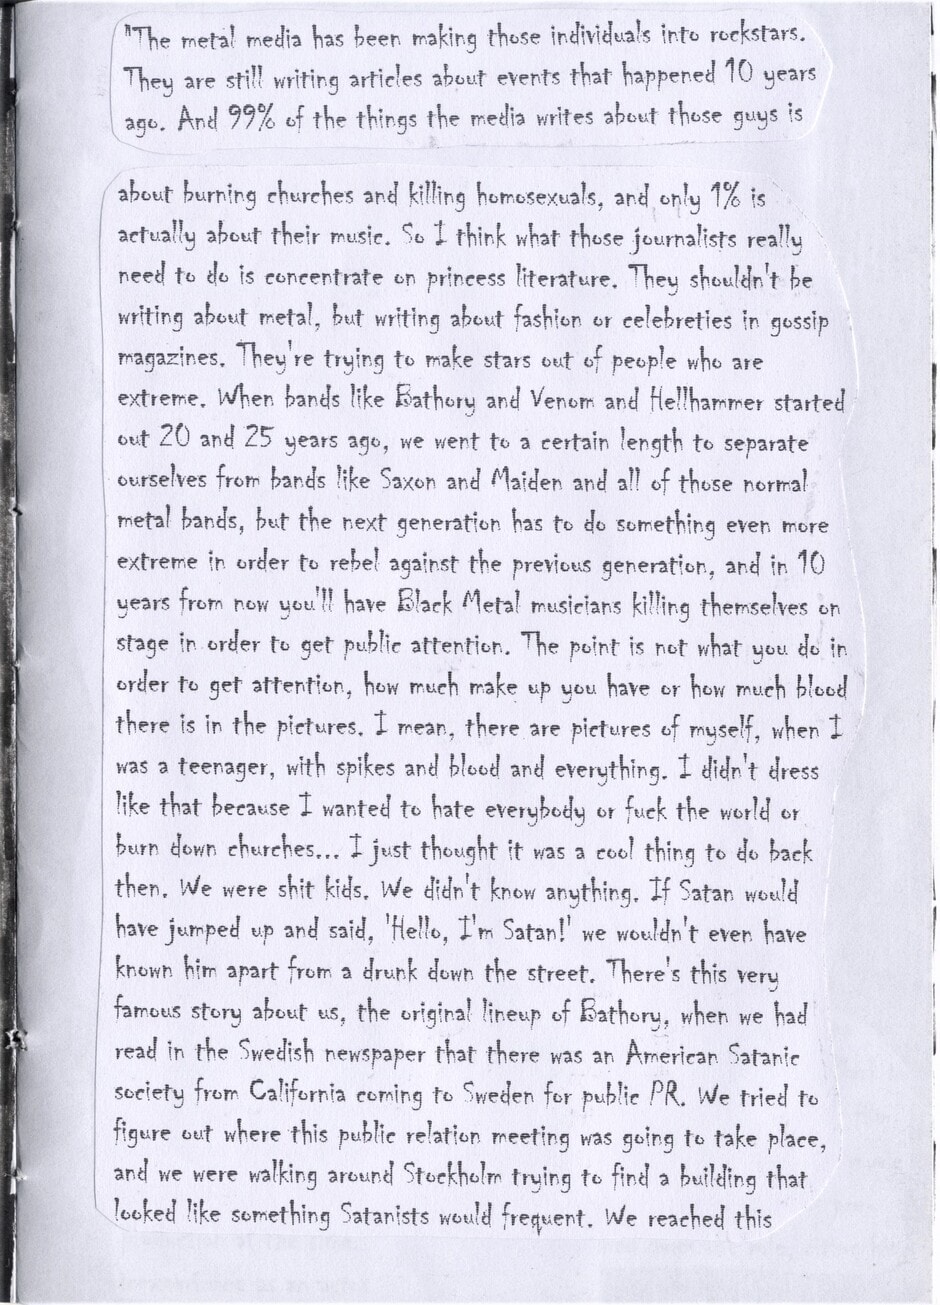 "The metal media has been making those individuals into rockstars.
They are still writing articles about events that happened 10 years
ago. And 99% of the things the media writes about those guys is
about burning churches and killing homosexuals, and only 1% is
actually about their music. So I think what those journalists really
need to do is concentrate on princess literature. They shouldn't be
writing about metal, but writing about fashion or celebreties in gossip
magazines. They're trying to make stars out of people who are
extreme. When bands like Bathory and Venom and Hellhammer started
out 20 and 25 years ago, we went to a certain length to separate
ourselves from bands like Saxon and Maiden and all of those normal
metal bands, but the next generation has to do something even more
extreme in order to rebel against the previous generation, and in 10
years from now you'll have Black Metal musicians killing themselves on
stage in order to get public attention. The point is not what you do in
order to get attention, how much make up you have or how much blood
there is in the pictures. I mean, there are pictures of myself, when I
was a teenager, with spikes and blood and everything. I didn't dress
like that because I wanted to hate everybody or fuck the world or
burn down churches... I just thought it was a cool thing to do back
then. We were shit kids. We didn't know anything. If Satan would
have jumped up and said, 'Hello, I'm Satan!' we wouldn't even have
known him apart from a drunk down the street. There's this very
famous story about us, the original lineup of Bathory, when we had
read in the Swedish newspaper that there was an American Satanic
society from California coming to Sweden for public PR. We tried to
figure out where this public relation meeting was going to take place,
and we were walking around Stockholm trying to find a building that
looked like something Satanists would frequent. We reached this